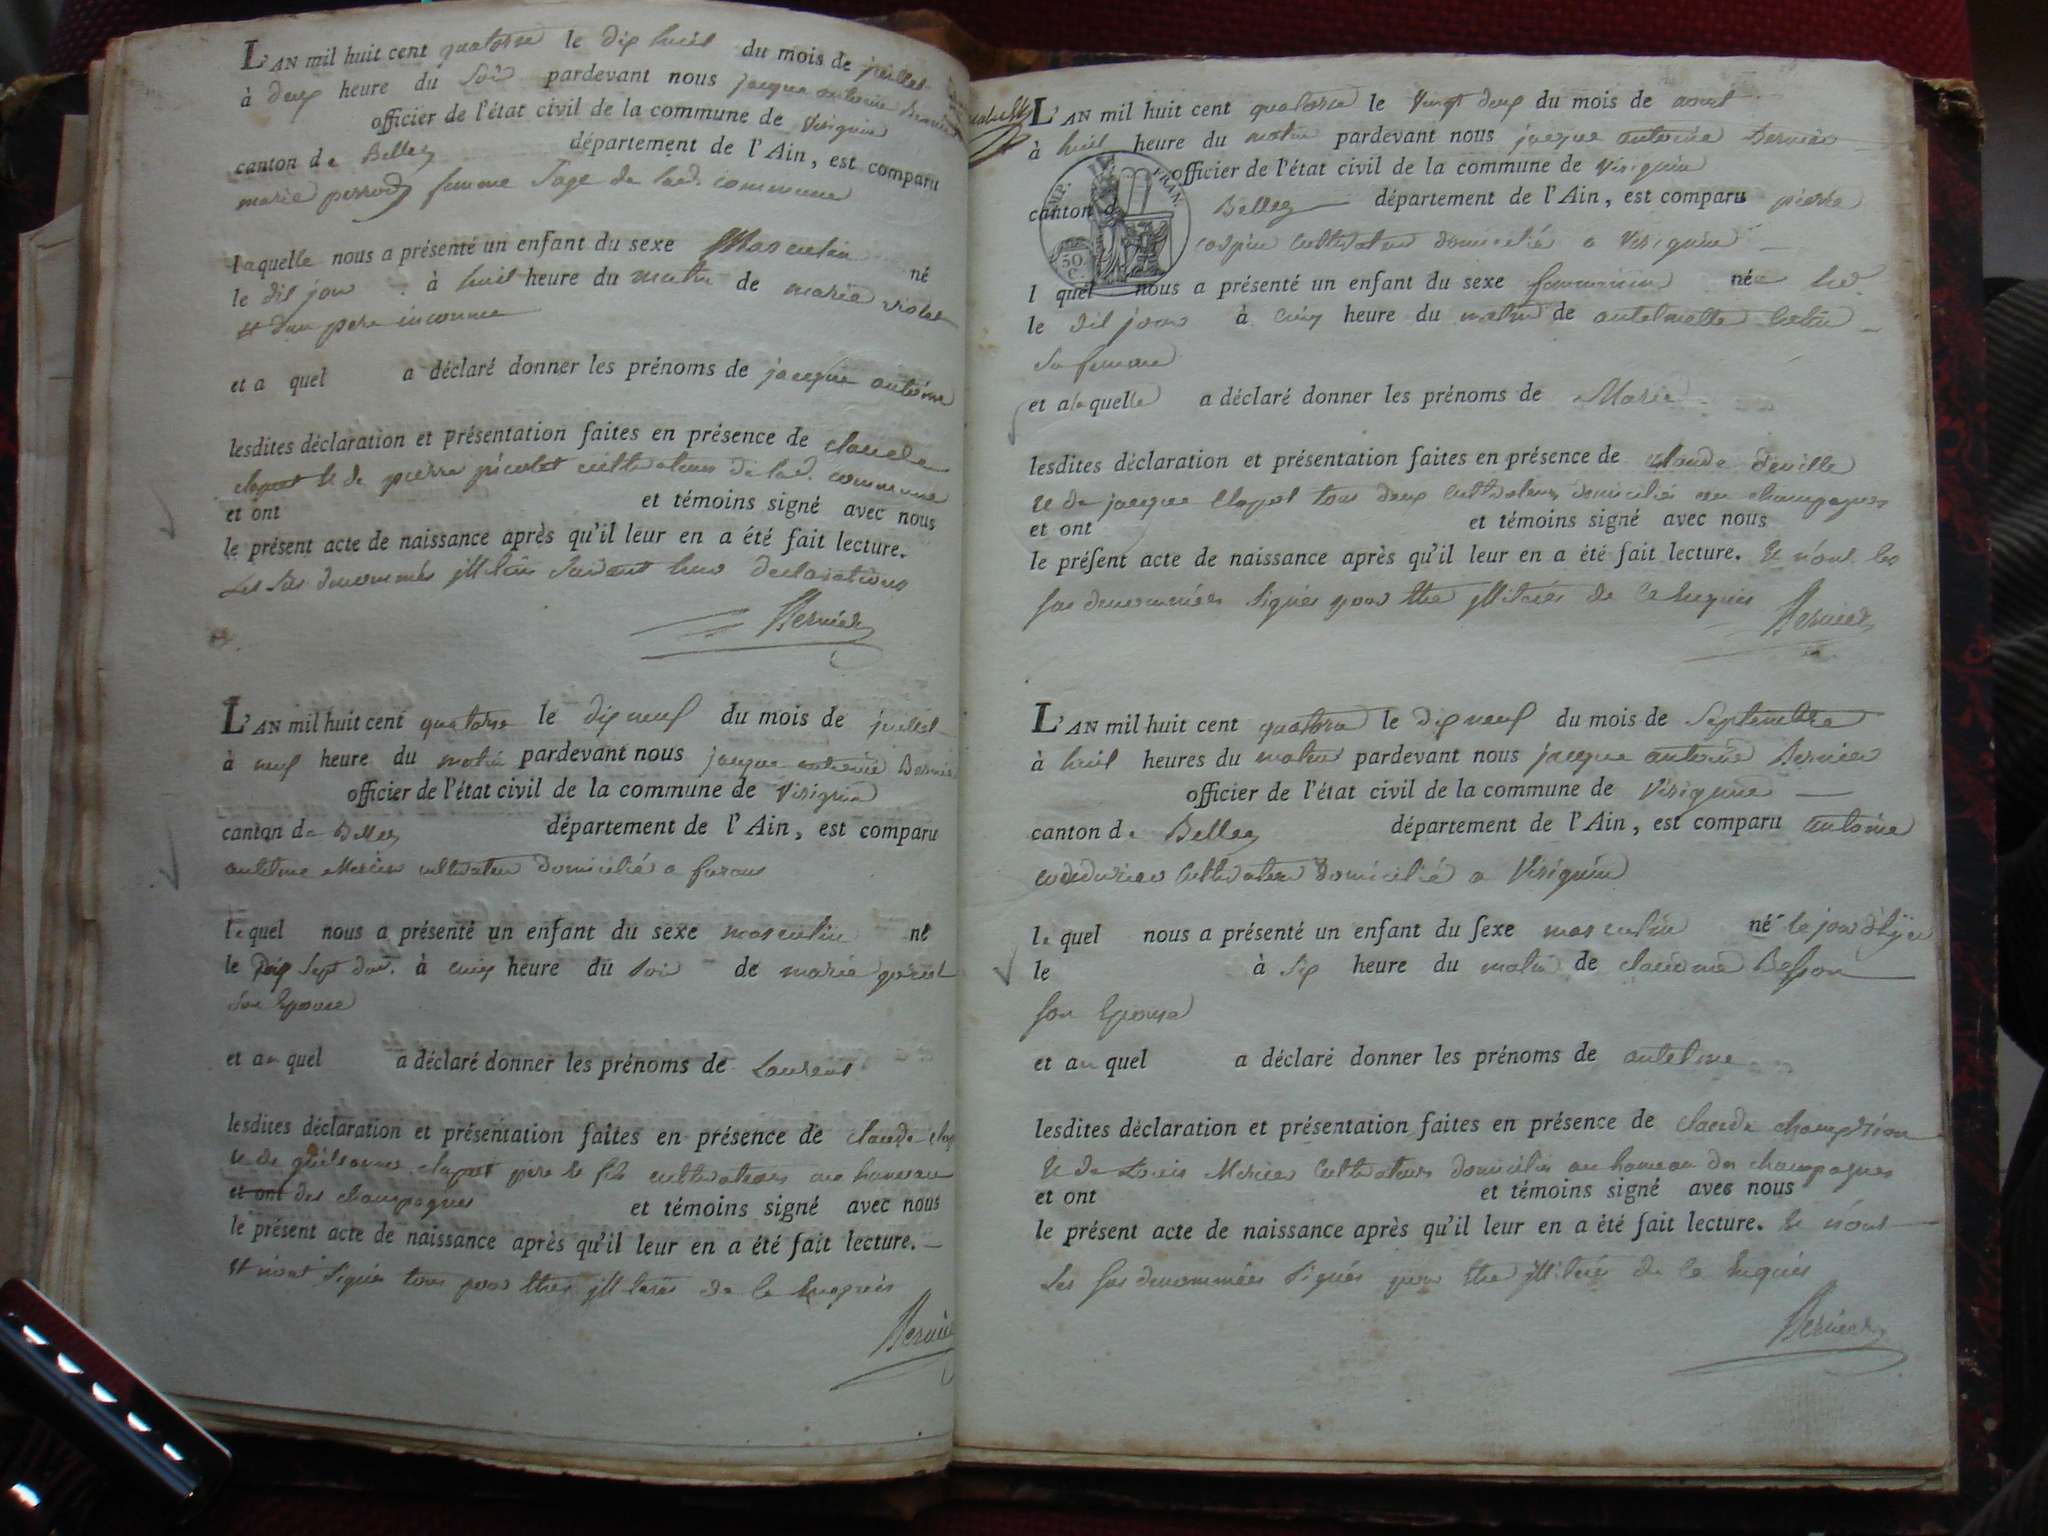 L'AN mil huit cent quatorse le dix huit du mois de juillet
à deux heure du soir pardevant nous jacque antoine Bernier
officier de l'état civil de la commune de Virignin
canton de Belley département de l'Ain, est comparu
marie perrod femme sage de lad. commune
laquelle nous a présenté un enfant du sexe Masculin né
le dit jour à huit heure du matin de marie violet
et d'un pere inconnue
et a quel a déclaré donner les prénoms de jacque antoine
lesdites déclaration et présentation faites en présence de claude
clapet & de pierre picolet cultivateurs de lad. commune
et ont et témoins signé avec nous
le présent acte de naissance après qu'il leur en a été fait lecture.
Les sus denommés suivant leur declarations
Bernier
L'AN mil huit cent quatorse le dix neuf du mois de juillet
à neuf heure du matin pardevant nous jacque antoine Bernier
officier de l'état civil de la commune de Virignin
canton de Belley département de l'Ain, est comparu
antelme Mercier cultivateur domicilié a furans
le quel nous a présenté un enfant du sexe masculin né
le dix sept du d. à cinq heure du soir de marie
son Epouse
et au quel a déclaré donner les prénoms de Laurent
lesdites déclaration et présentation faites en présence de claude
& de clapet pere & fils cultivateurs au hameau
et ont des champagnes et témoins signé avec nous
le présent acte de naissance après qu'il leur en a été fait lecture.
et n'ont signés tous pour être de ce Enquis
Bernier
L'AN mil huit cent quatorse le vingt deux du mois de aout
à huit heure du matin pardevant nous jacque antoine Bernier
officier de l'état civil de la commune de Virignin
canton d Belley département de l'Ain, est comparu pierre
cultivateur domicilié a Virignin
IMP. FRAN.
50 C.
l quel nous a présenté un enfant du sexe née
le dit jour à cinq heure du matin de antelmette
sa femme
et a la quelle a déclaré donner les prénoms de Marie
lesdites déclaration et présentation faites en présence de claude
& de jacque Clapet tous deux cultivateurs domiciliés au champagnes
et ont et témoins signé avec nous
le présent acte de naissance après qu'il leur en a été fait lecture. & n'ont les
sus denommés signés pour être de ce Enquis
Bernier
L'AN mil huit cent quatorse le dix neuf du mois de Septembre
à huit heures du matin pardevant nous jacque antoine Bernier
officier de l'état civil de la commune de Virignin
canton de Belley département de l'Ain, est comparu antoine
cultivateur domicilié a Virignin
le quel nous a présenté un enfant du sexe masculin né le jour d'hier
le à six heure du matin de claudine Besson
son Epouse
et au quel a déclaré donner les prénoms de antelme
lesdites déclaration et présentation faites en présence de claude
& de Louis Mercier Cultivateurs domiciliés au hameau des champagnes
et ont et témoins signé avec nous
le présent acte de naissance après qu'il leur en a été fait lecture. & n'ont
Les sus denommés signés pour être de ce Enquis
Bernier